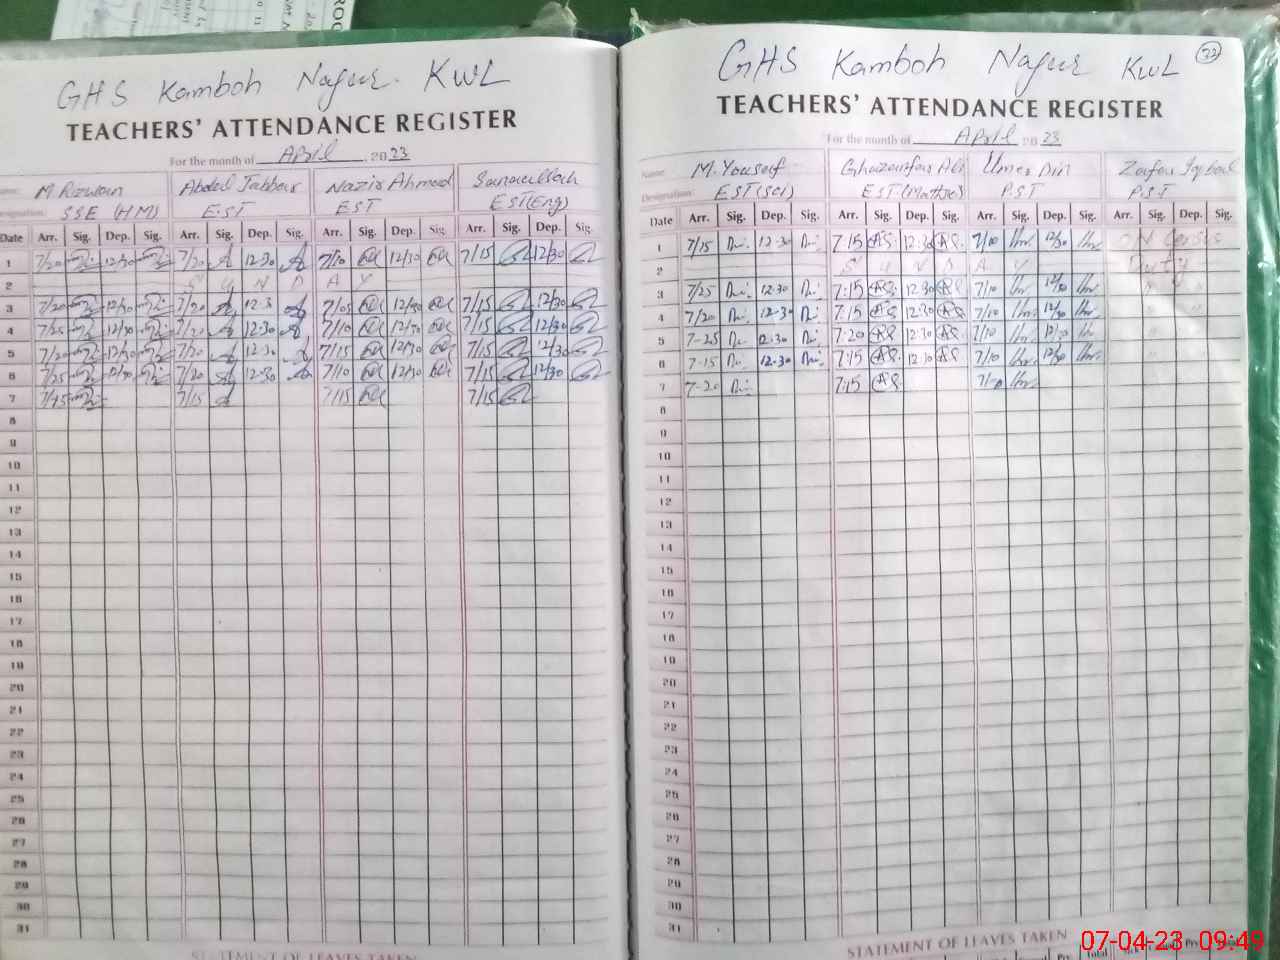 GHS Kamboh Nagur KWL
TEACHERS' ATTENDANCE REGISTER
For the month of April 2023
M. Rizwan Abdul Jabbar Nazir Ahmad Sanaullah
SSE (HM) EST EST EST(Eng)
Date Arr. Sig. Dep. Sig. Arr. Sig. Dep. Sig. Arr. Sig. Dep. Sig. Arr. Sig. Dep. Sig.
1 7/20 12/30 7/20 12-30 7/10 12/30 7/15 12/30
2 S U N D A Y
3 7/20 12/30 7/20 12-3 7/05 12/30 7/15 12/30
4 7/25 12/30 7/20 12-30 7/10 12/30 7/15 12/30
5 7/20 12/30 7/20 12-30 7/15 12/30 7/15 12/30
6 7/25 12/30 7/20 12-30 7/10 12/30 7/15 12/30
7 7/15 7/15 7/15 7/15
8
9
10
11
12
13
14
15
16
17
18
19
20
21
22
23
24
25
26
27
28
29
30
31
STATEMENT OF LEAVES TAKEN
GHS Kamboh Nagur KWL 22
TEACHERS' ATTENDANCE REGISTER
For the month of April 2023
Name: M. Yousaf Ghazanfar Ali Umer Din Zafar Iqbal
Designation: EST(Sci) EST(Maths) P.S.T P.S.T
Date Arr. Sig. Dep. Sig. Arr. Sig. Dep. Sig. Arr. Sig. Dep. Sig. Arr. Sig. Dep. Sig.
1 7/15 12-30 7:15 12:30 7/10 12/30 ON Census
2 S U N D A Y Duty
3 7/25 12-30 7:15 12:30 7/10 12/30
4 7/20 12-30 7:15 12:30 7/10 12/30
5 7-25 12-30 7:20 12:30 7/10 12/30
6 7-15 12-30 7:15 12:30 7/10 12/30
7 7-20 7:15
8
9
10
11
12
13
14
15
16
17
18
19
20
21
22
23
24
25
26
27
28
29
30
31
STATEMENT OF LEAVES TAKEN
07-04-23 09:49